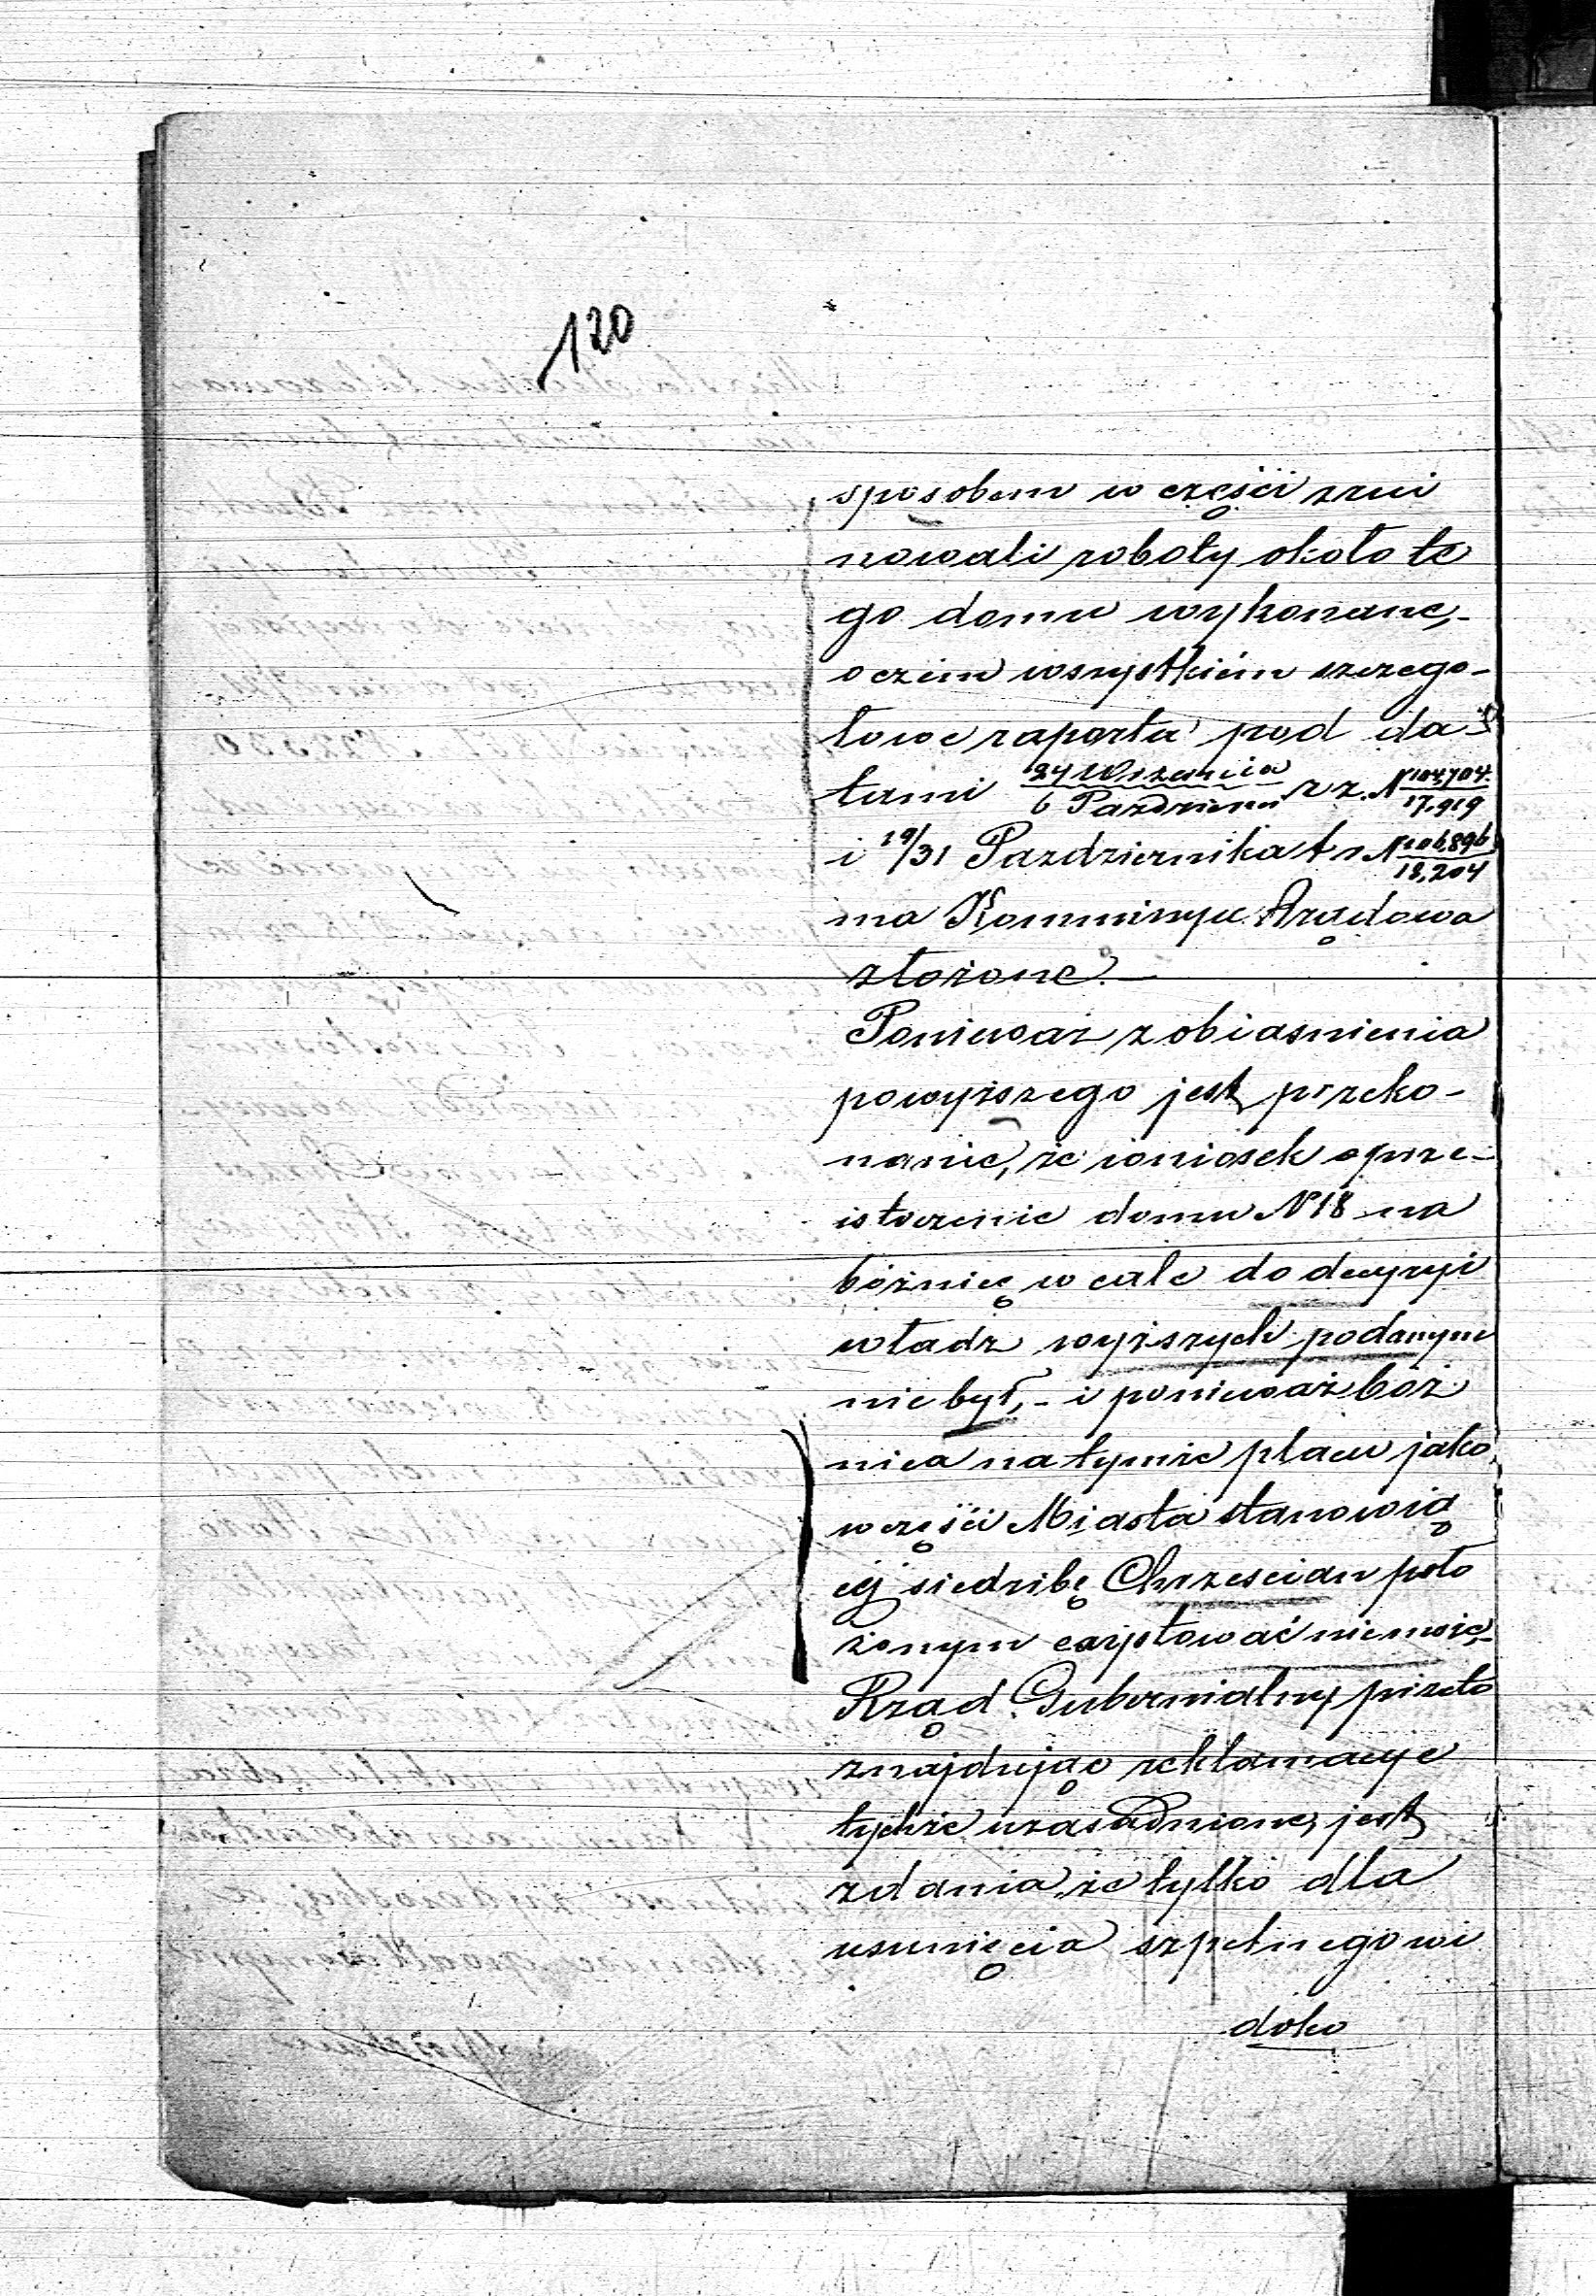 120
sposobem w części zrui
nowali roboty około te
go domu wykonane,-
o czém wszystkiém szczegó-
łowe raporta pod da-
tami 24 Września / 6 Pazdziern r z. N 104,704. / 17,919
i 19/31 Pazdziernika t r N 106,896 / 18,204
ma Kommissya Rządowa
złożone.-
Poniewaz z obiasnienia
powyższego jest przeko-
nanie, że wniosek o prze-
istoczenie domu N 18 na
bóżnicę w cale do decyzyi
władz wyższych podanym
nie był,- i ponieważ bóż
nica na tymże placu jako
w części Miasta stanowią
céj siedzibę Chrzescian poło
żonym exystować nie może-
Rząd Gubernialny przeto
znajdując reklamacye
tychże uzasadnione, jest
zdania że tylko dla
usunięcia szpetnego wi
doku